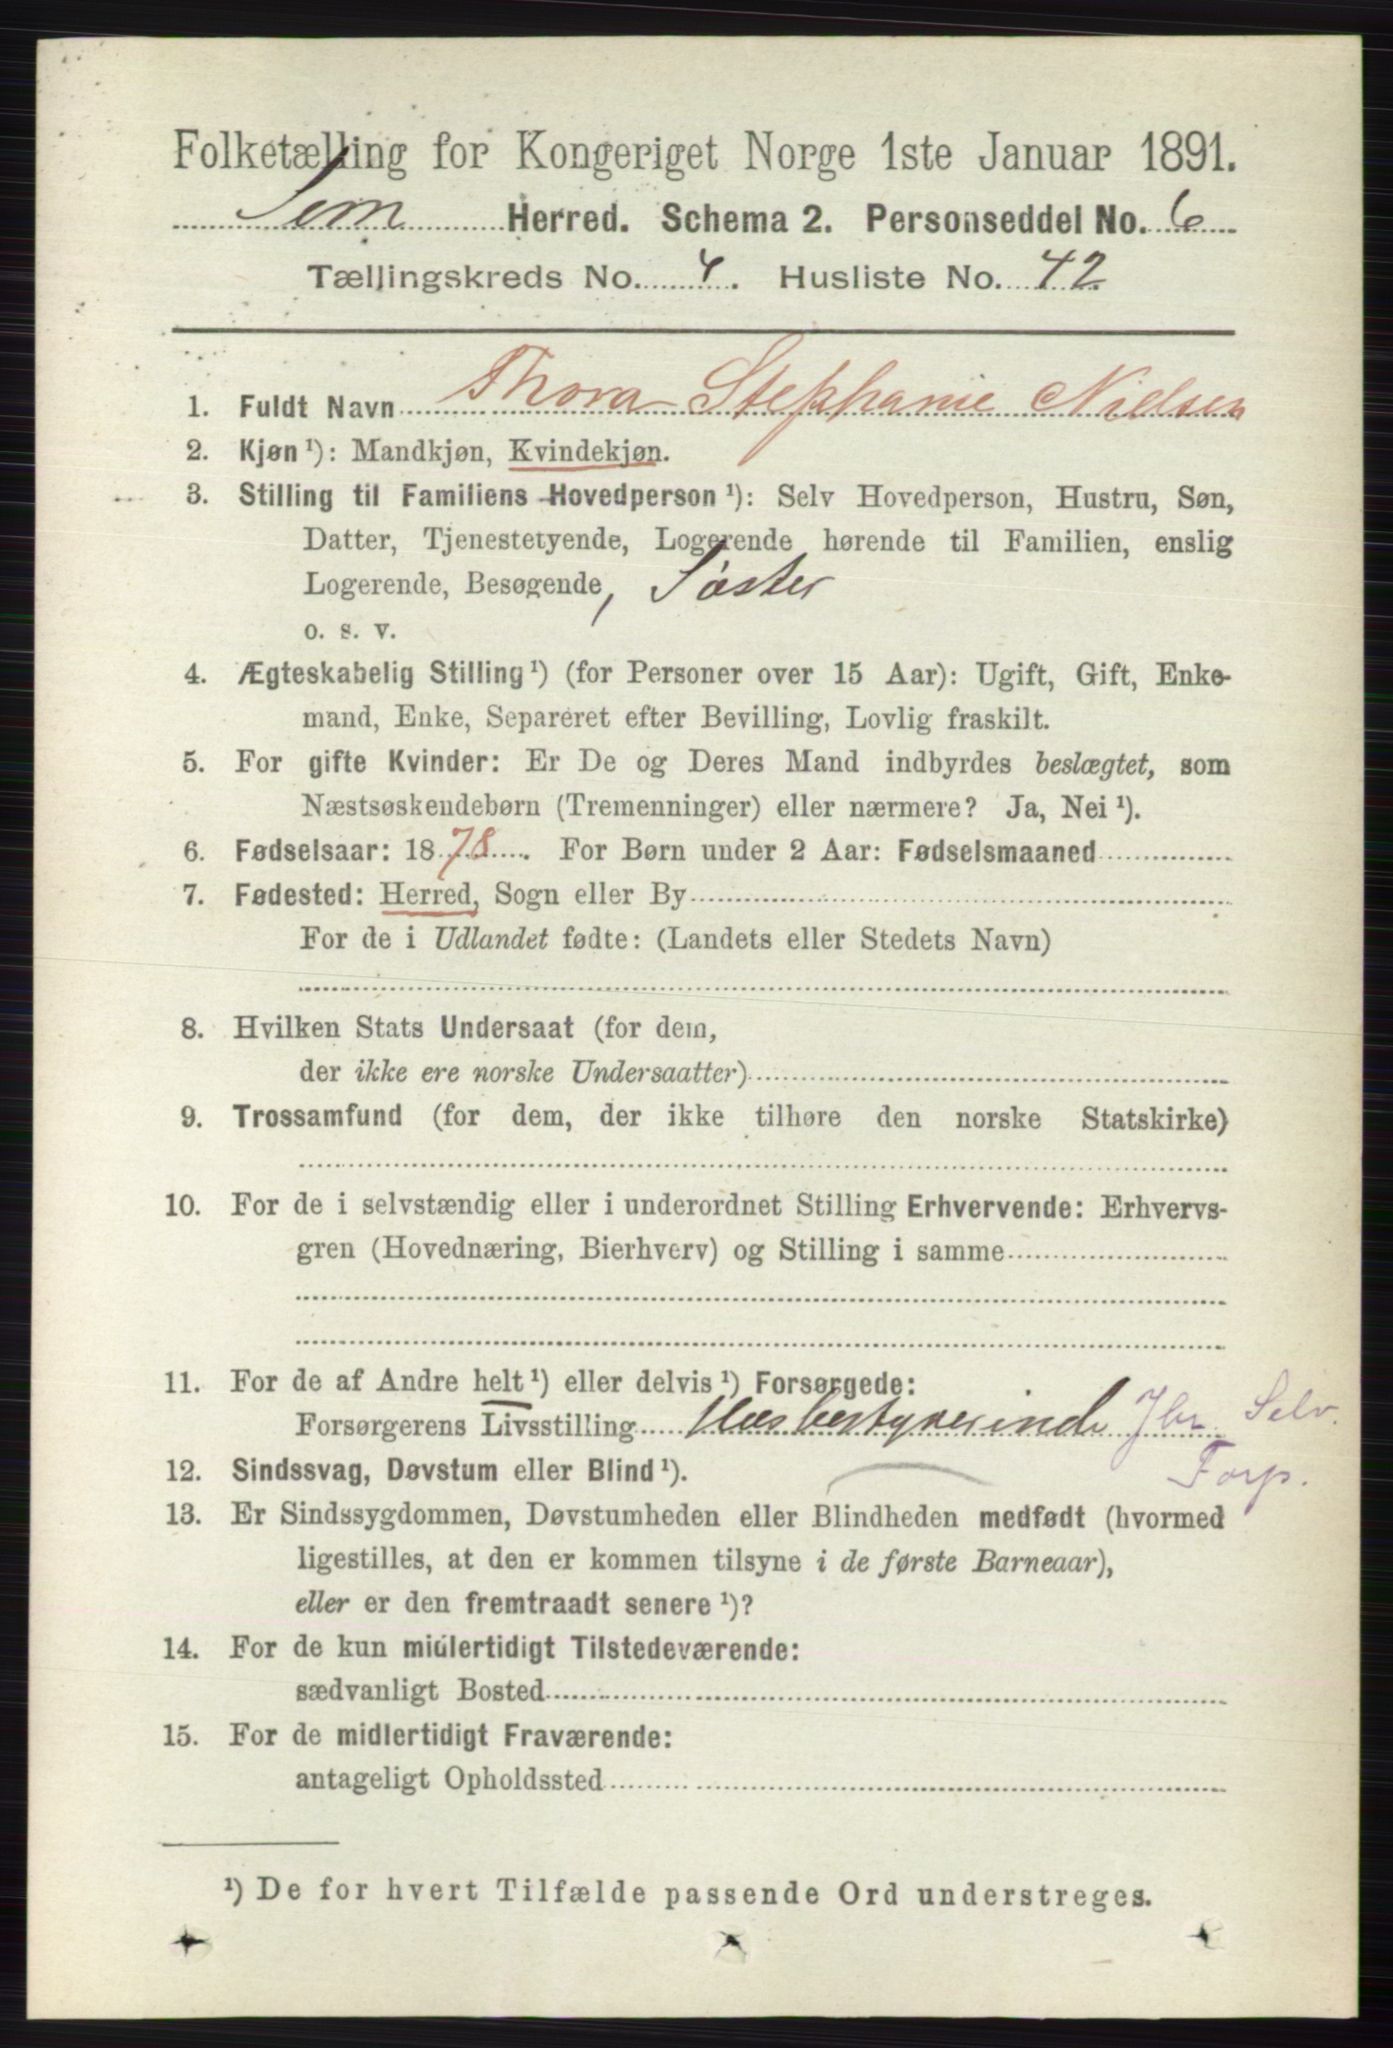 Folketælling for Kongeriget Norge 1ste Januar 1891.
Sem Herred. Schema 2. Personseddel No. 6
Tællingskreds No. 4. Husliste No. 42
1. Fuldt Navn Thora Stephanie Nielsen
2. Kjøn ¹): Mandkjøn, Kvindekjøn.
3. Stilling til Familiens Hovedperson ¹): Selv Hovedperson, Hustru, Søn,
Datter, Tjenestetyende, Logerende hørende til Familien, enslig
Logerende, Besøgende, Søster
o. s. v.
4. Ægteskabelig Stilling ¹) (for Personer over 15 Aar): Ugift, Gift, Enke-
mand, Enke, Separeret efter Bevilling, Lovlig fraskilt.
5. For gifte Kvinder: Er De og Deres Mand indbyrdes beslægtet, som
Næstsøskendebørn (Tremenninger) eller nærmere? Ja, Nei ¹).
6. Fødselsaar: 1878. For Børn under 2 Aar: Fødselsmaaned
7. Fødested: Herred, Sogn eller By
For de i Udlandet fødte: (Landets eller Stedets Navn)
8. Hvilken Stats Undersaat (for dem,
der ikke ere norske Undersaatter)
9. Trossamfund (for dem, der ikke tilhøre den norske Statskirke)
10. For de i selvstændig eller i underordnet Stilling Erhvervende: Erhvervs-
gren (Hovednæring, Bierhverv) og Stilling i samme
11. For de af Andre helt ¹) eller delvis ¹) Forsørgede:
Forsørgerens Livsstilling Husbestyrerinde Jbr. Selv.
Forp.
12. Sindssvag, Døvstum eller Blind ¹).
13. Er Sindssygdommen, Døvstumheden eller Blindheden medfødt (hvormed
ligestilles, at den er kommen tilsyne i de første Barneaar),
eller er den fremtraadt senere ¹)?
14. For de kun midlertidigt Tilstedeværende:
sædvanligt Bosted
15. For de midlertidigt Fraværende:
antageligt Opholdssted
¹) De for hvert Tilfælde passende Ord understreges.